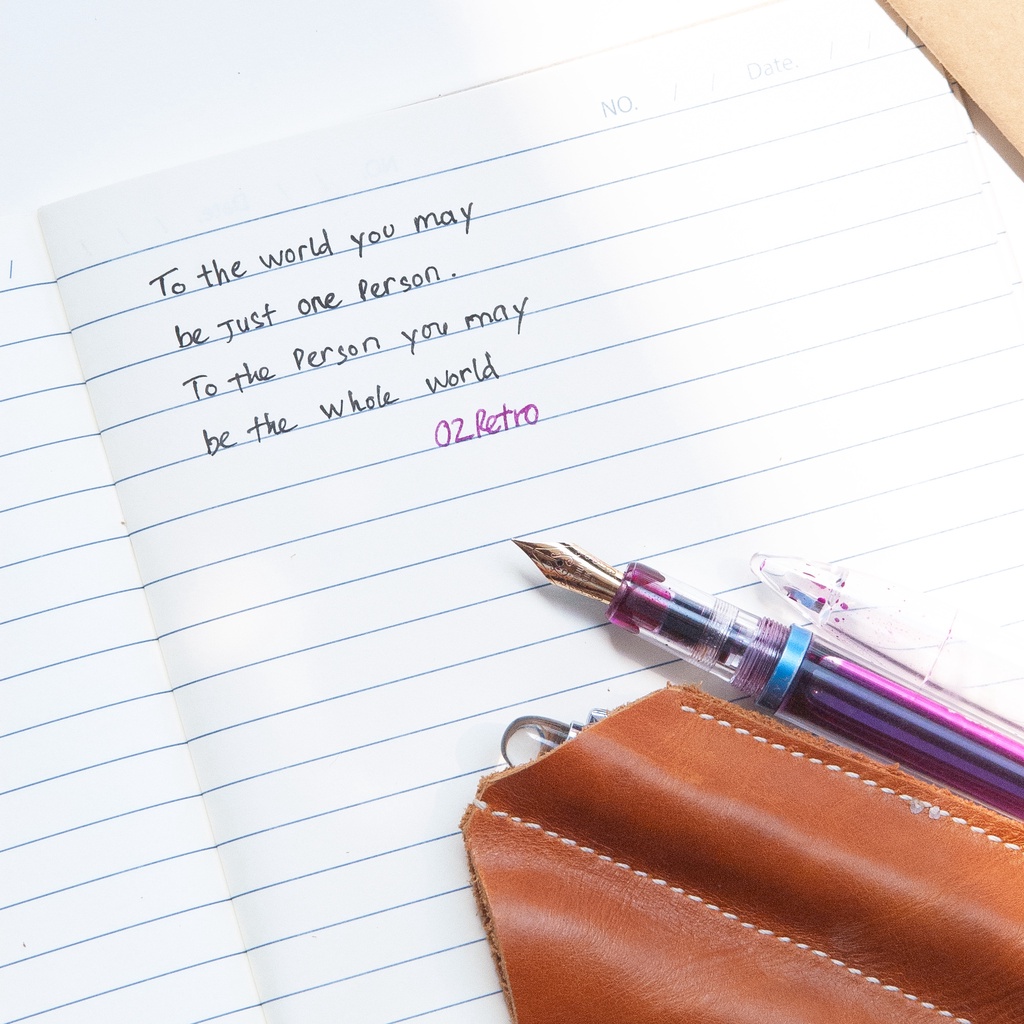 NO. / / Date. / /
To the world you may
be Just one Person.
To the Person you may
be the whole world
02Retro